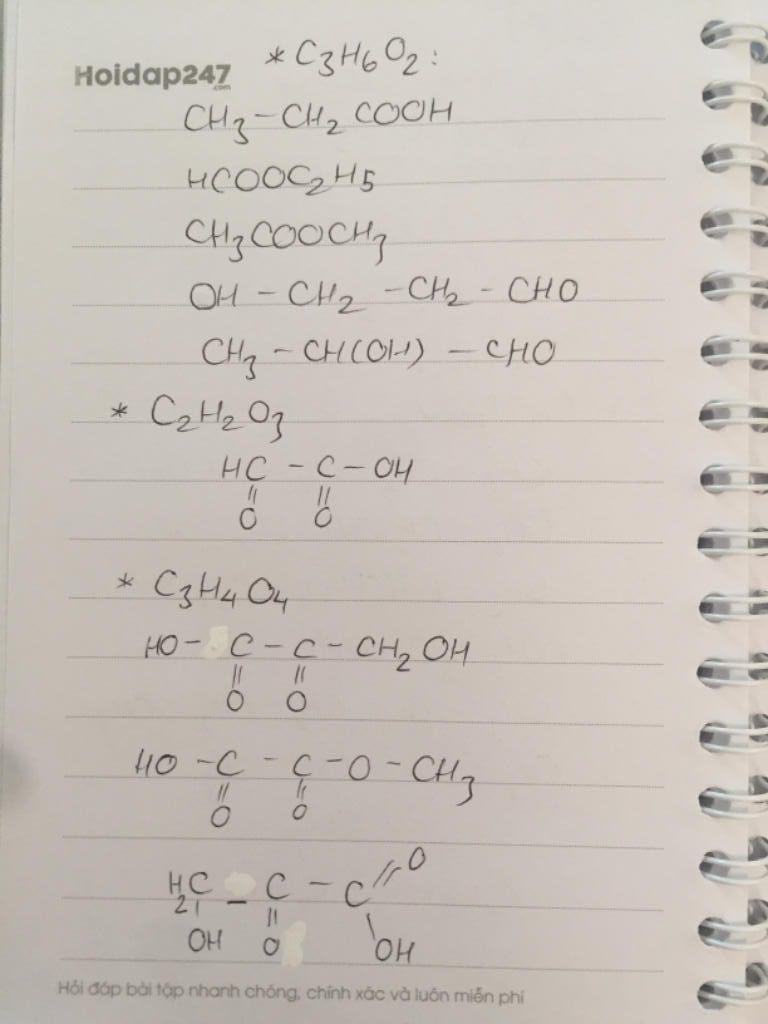 * C₃H₆O₂:
Hoidap247
.com
CH₃ – CH₂ COOH
HCOOC₂H₅
CH₃COOCH₃
OH – CH₂ – CH₂ – CHO
CH₃ – CH(OH) – CHO
* C₂H₂O₃
HC – C – OH
|| ||
O O
* C₃H₄O₄
HO – C – C – CH₂ OH
|| ||
O O
HO – C – C – O – CH₃
|| ||
O O
H₂C – C – C // O
| || \
OH O OH
Hỏi đáp bài tập nhanh chóng, chính xác và luôn miễn phí